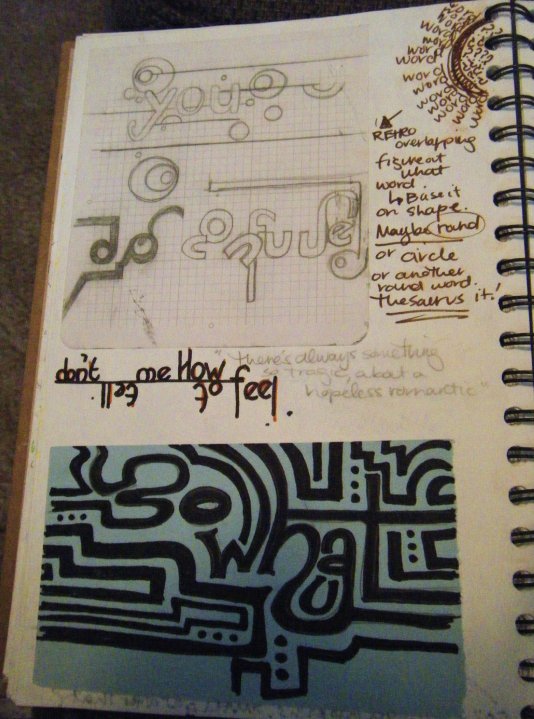 you.
confused
RETRO
overlapping
figure out
what
word.
↳ Base it
on shape.
Maybe round
or circle
or another
round word.
Thesaurus it!
don't tell me How to feel.
"there's always something
so tragic, about a
hopeless romantic"
so
what
word
word
word
word
word
word
word